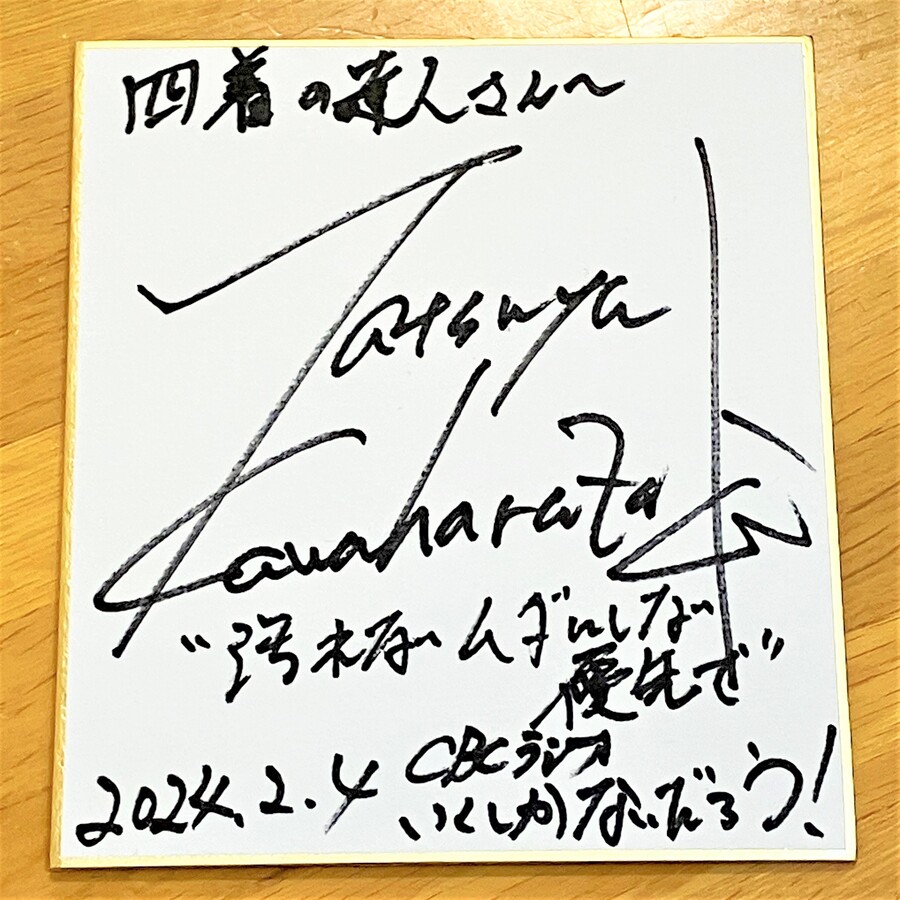 四着の達人さんへ
Tatsuya
Kawaharada
ムダにしない
優先で"
2024.2.4 CBCラジオ
いくしかないだろう!